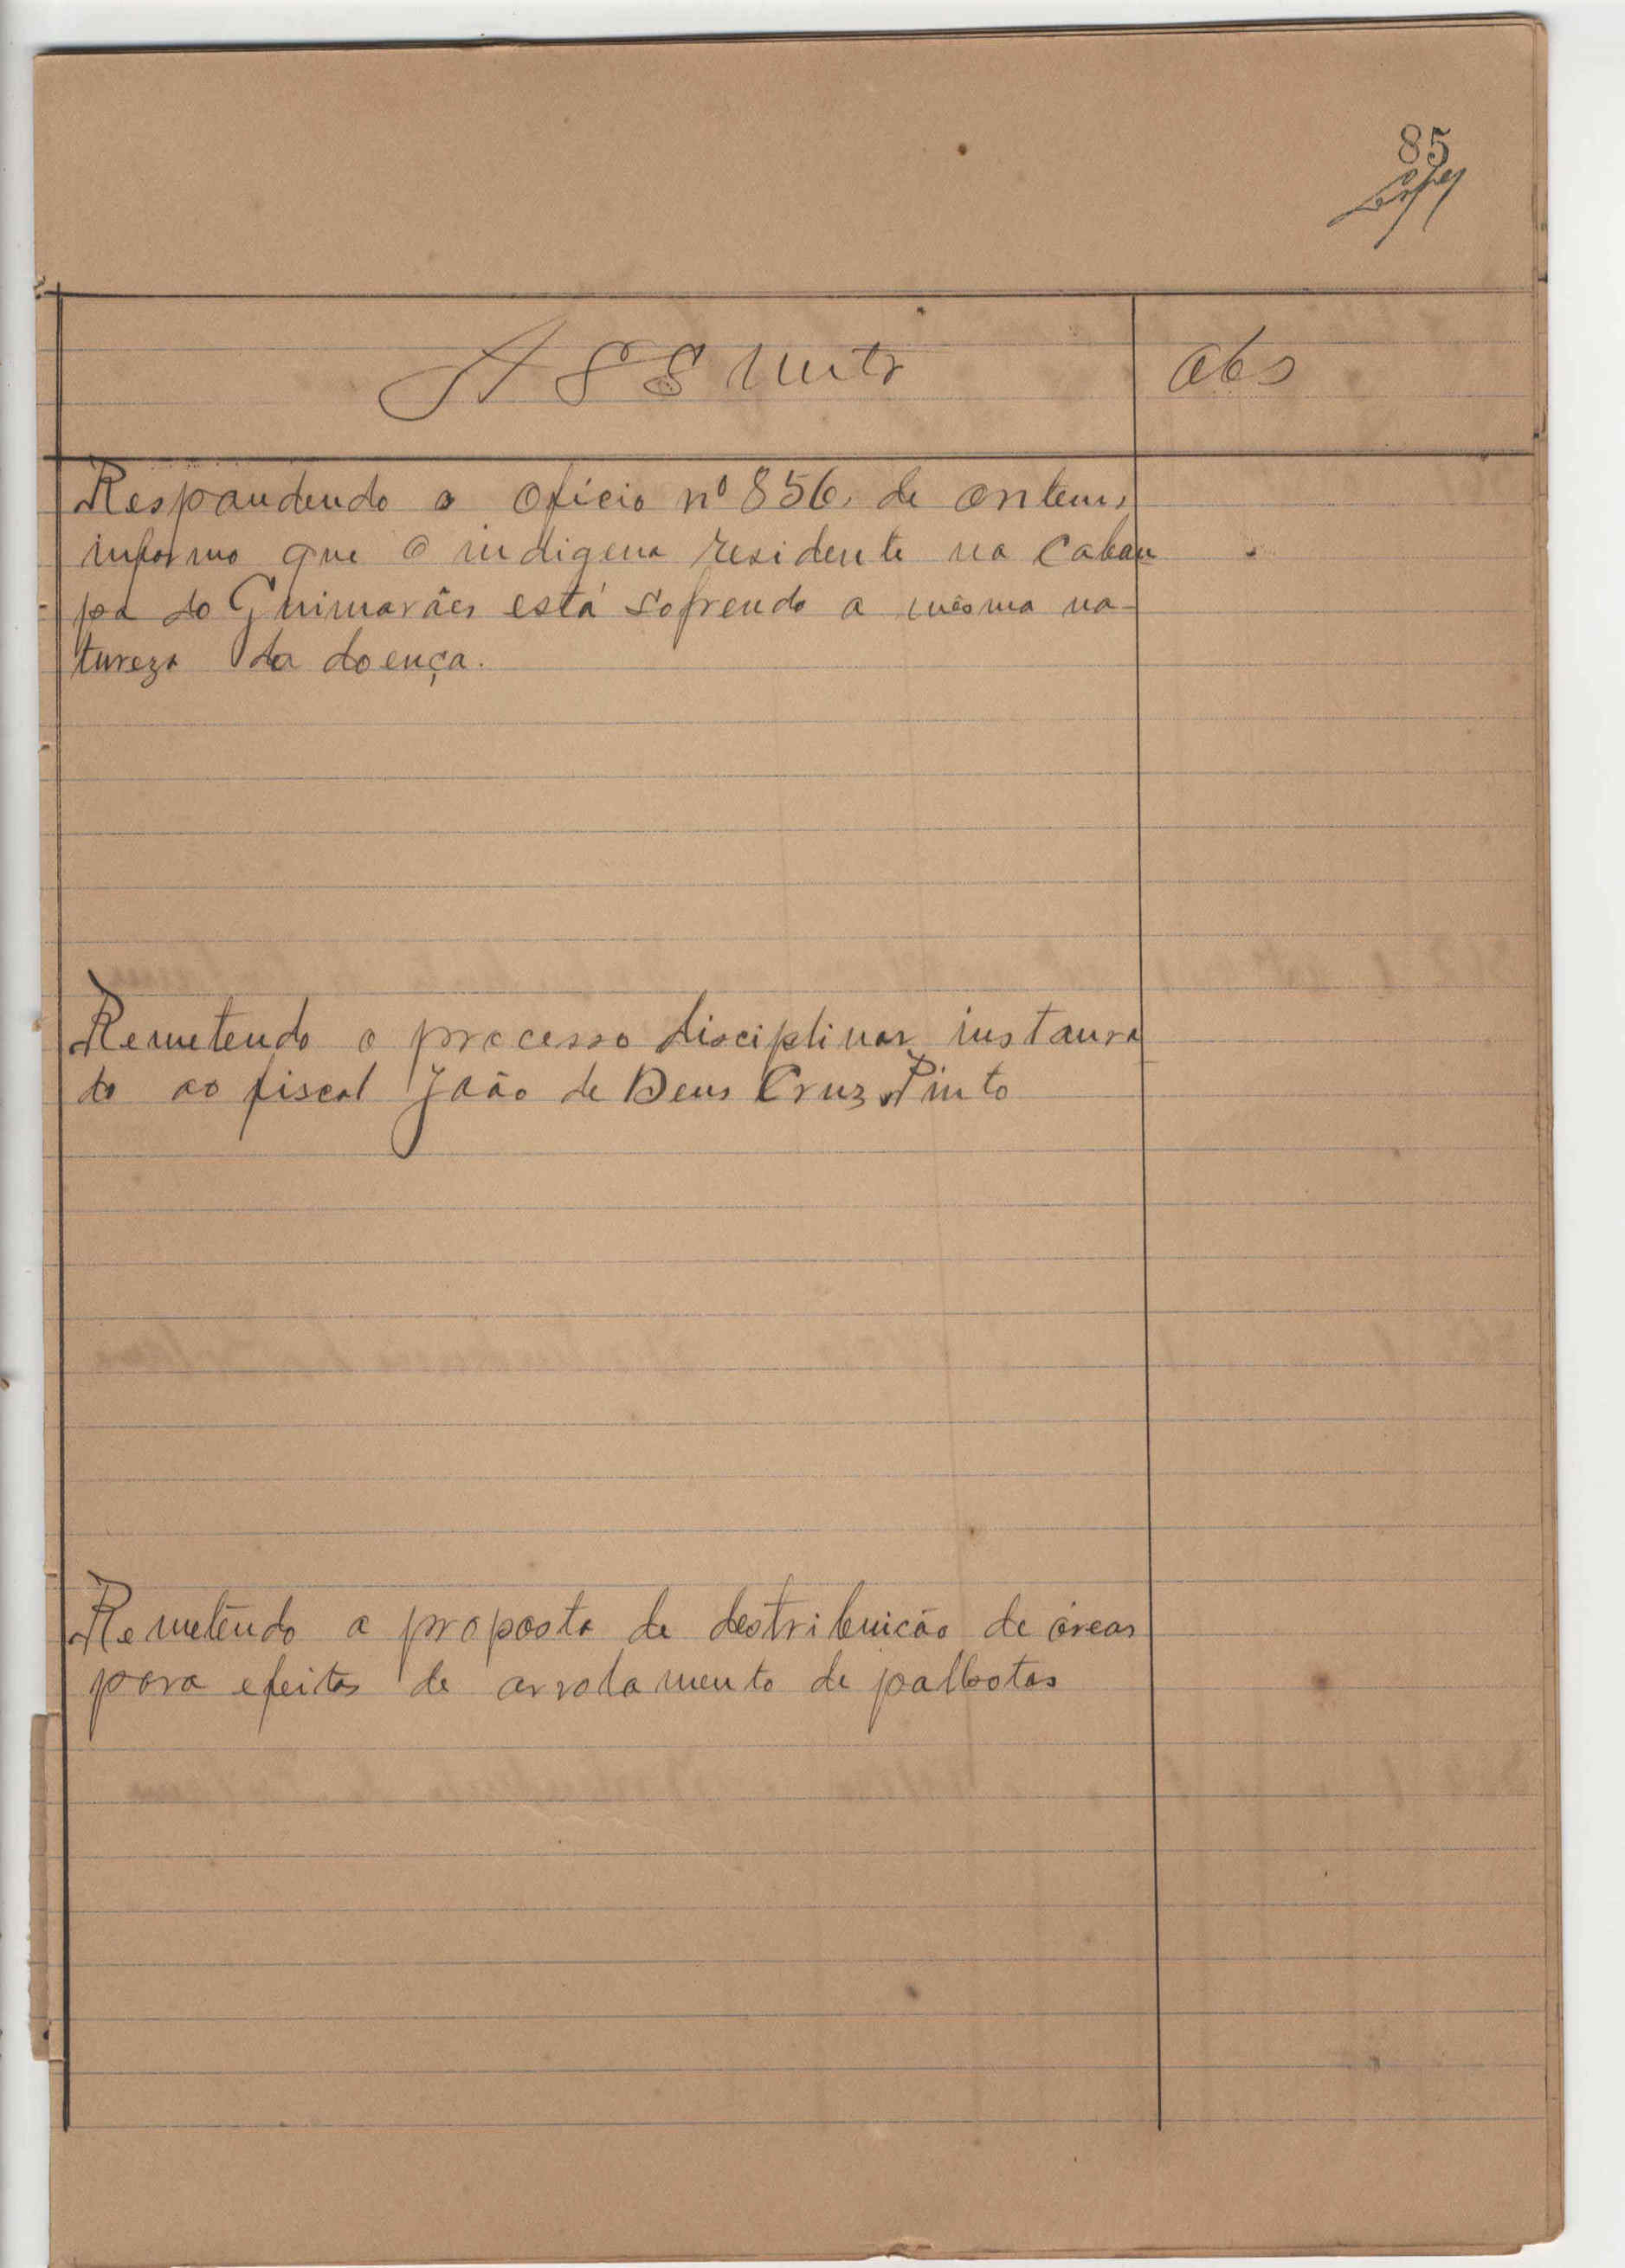 85
Assunto
Obs
Respondendo o oficio nº 856, de ontem,
informo que o indigena residente na Caban
pa do Guimarães está sofrendo a mesma na-
tureza da doença.
Remetendo o processo disciplinar instaura
do ao fiscal João de Deus Cruz Pinto
Remetêndo a proposta de destribuicão de áreas
para efeitos de arrolamento de palhotas